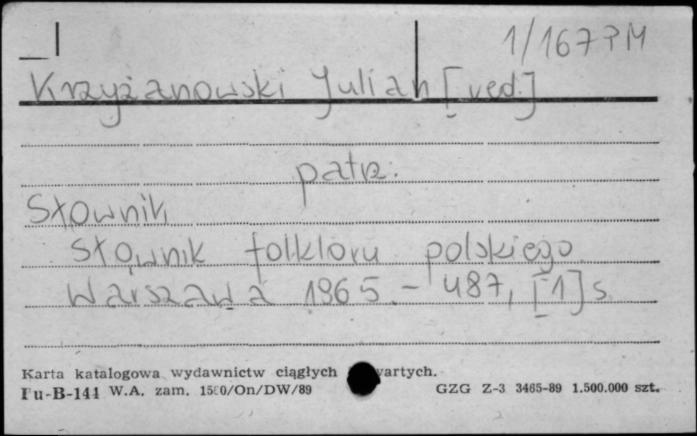 1/167PM
Krzyżanowski Julian [red.]
patrz:
Słownik
Słownik folkloru polskiego
Warszawa 1965. - 487, [1] s.
Karta katalogowa wydawnictw ciągłych
Pu-B-144 W.A. zam. 1580/On/DW/89 GZG Z-3 3465-89 1.500.000 szt.